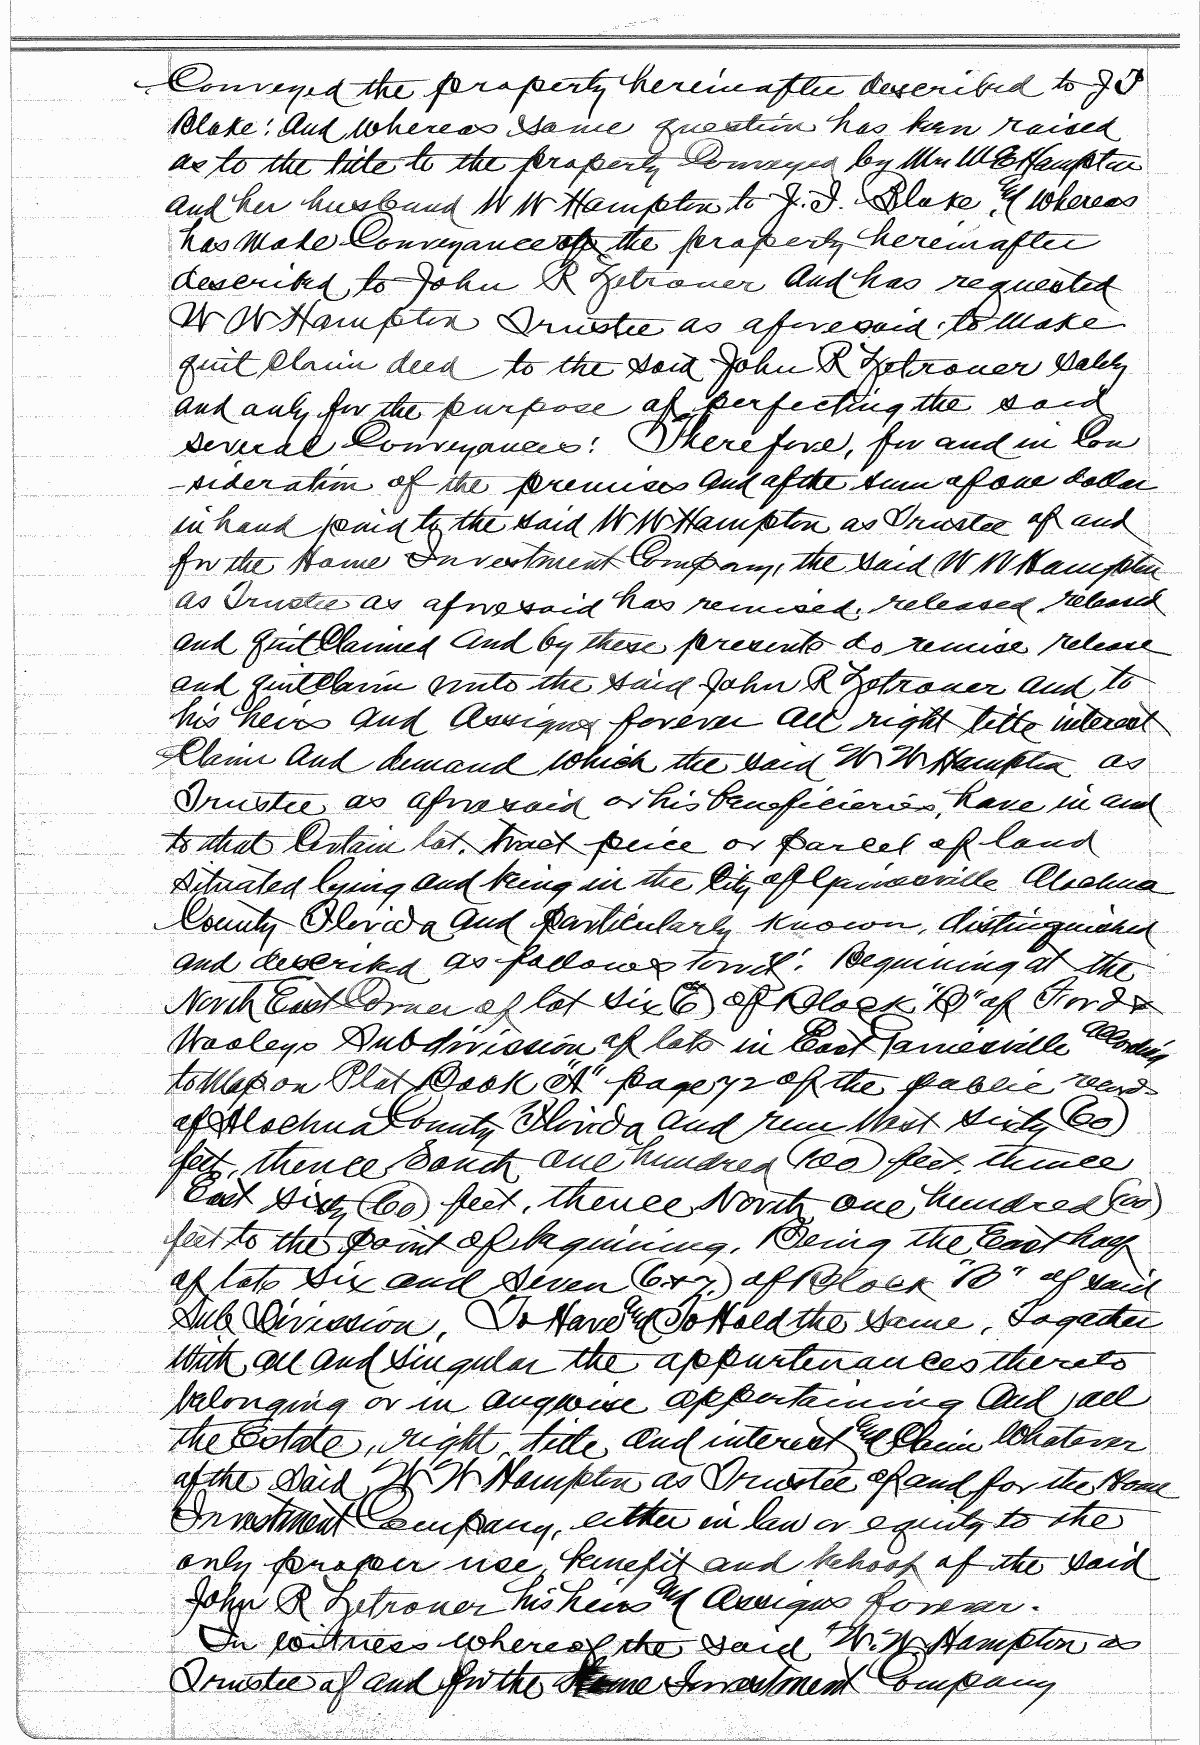 Conveyed the property hereinafter described to J T
Blake: And whereas some question has been raised
as to the title to the property Conveyed by Mrs W E Hampton
and her husband W W Hampton to J. T. Blake, and whereas
has made Conveyance of the property hereinafter
described to John R Zetrouer and has requested
W W Hampton Trustee as aforesaid to make
quit Claim deed to the said John R Zetrouer solely
and only for the purpose of perfecting the said
several Conveyances: Therefore, for and in Con
-sideration of the premises and of the sum of one dollar
in hand paid to the said W W Hampton as Trustee of and
for the Home Investment Company, the said W W Hampton
as Trustee as aforesaid has remised, released released
and quit Claimed and by these presents do remise release
and quitClaim unto the said John R Zetrouer and to
his heirs and Assigns forever all right title interest
Claim and demand which the said W W Hampton as
Trustee as aforesaid or his beneficieries, have in and
to that Certain lot, tract peice or parcel of land
situated lying and being in the City of Gainesville Alachua
County Florida and particularly known, distinguished
and described as follows towit: Beguining at the
North East Corner of lot six (6) of Block "B" of Ford &
Wooleys Subdivission of lots in East Gainesville according
to Map on Plat Book "A" page 72 of the public records
of Alachua County Florida and run West sixty (60)
feet, thence South one hundred (100) feet, thence
East sixty (60) feet, thence North one hundred (100)
feet to the point of beguining. Being the East half
of lots six and seven (6 & 7) of Block "B" of said
Sub Division, To Have and To Hold the same, Together
with all and singular the appurtenances thereto
belonging or in anywise appertaining and all
the Estate, right, title, and interest and Claim Whatever
of the said W W Hampton as Trustee of and for the Home
Investment Company, either in law or equity to the
only proper use, benefit and behoof of the said
John R Zetrouer his heirs and Assigns forever.
In witness whereof the said W. W Hampton as
Trustee of and for the Home Investment Company